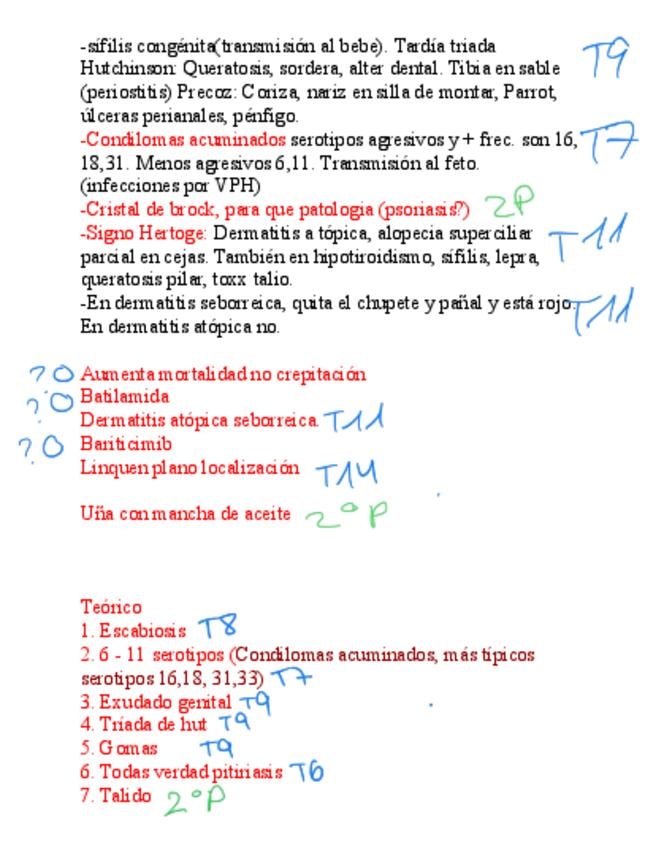 -sífilis congénita(transmisión al bebe). Tardía triada T9
Hutchinson: Queratosis, sordera, alter dental. Tibia en sable
(periostitis) Precoz: Coriza, nariz en silla de montar, Parrot,
úlceras perianales, pénfigo.
-Condilomas acuminados serotipos agresivos y + frec. son 16, T7
18,31. Menos agresivos 6,11. Transmisión al feto.
(infecciones por VPH)
-Cristal de brock, para que patologia (psoriasis?) 2P
-Signo Hertoge: Dermatitis a tópica, alopecia superciliar T11
parcial en cejas. También en hipotiroidismo, sífilis, lepra,
queratosis pilar, toxx talio.
-En dermatitis seborreica, quita el chupete y pañal y está rojo. T11
En dermatitis atópica no.
?O Aumenta mortalidad no crepitación
?O Batilamida
Dermatitis atópica seborreica. T11
?O Bariticimib
Linquen plano localización T14
Uña con mancha de aceite 2º P
Teórico
1. Escabiosis T8
2. 6 - 11 serotipos (Condilomas acuminados, más típicos
serotipos 16,18, 31,33) T7
3. Exudado genital T9
4. Tríada de hut T9
5. Gomas T9
6. Todas verdad pitiriasis T6
7. Talido 2º P